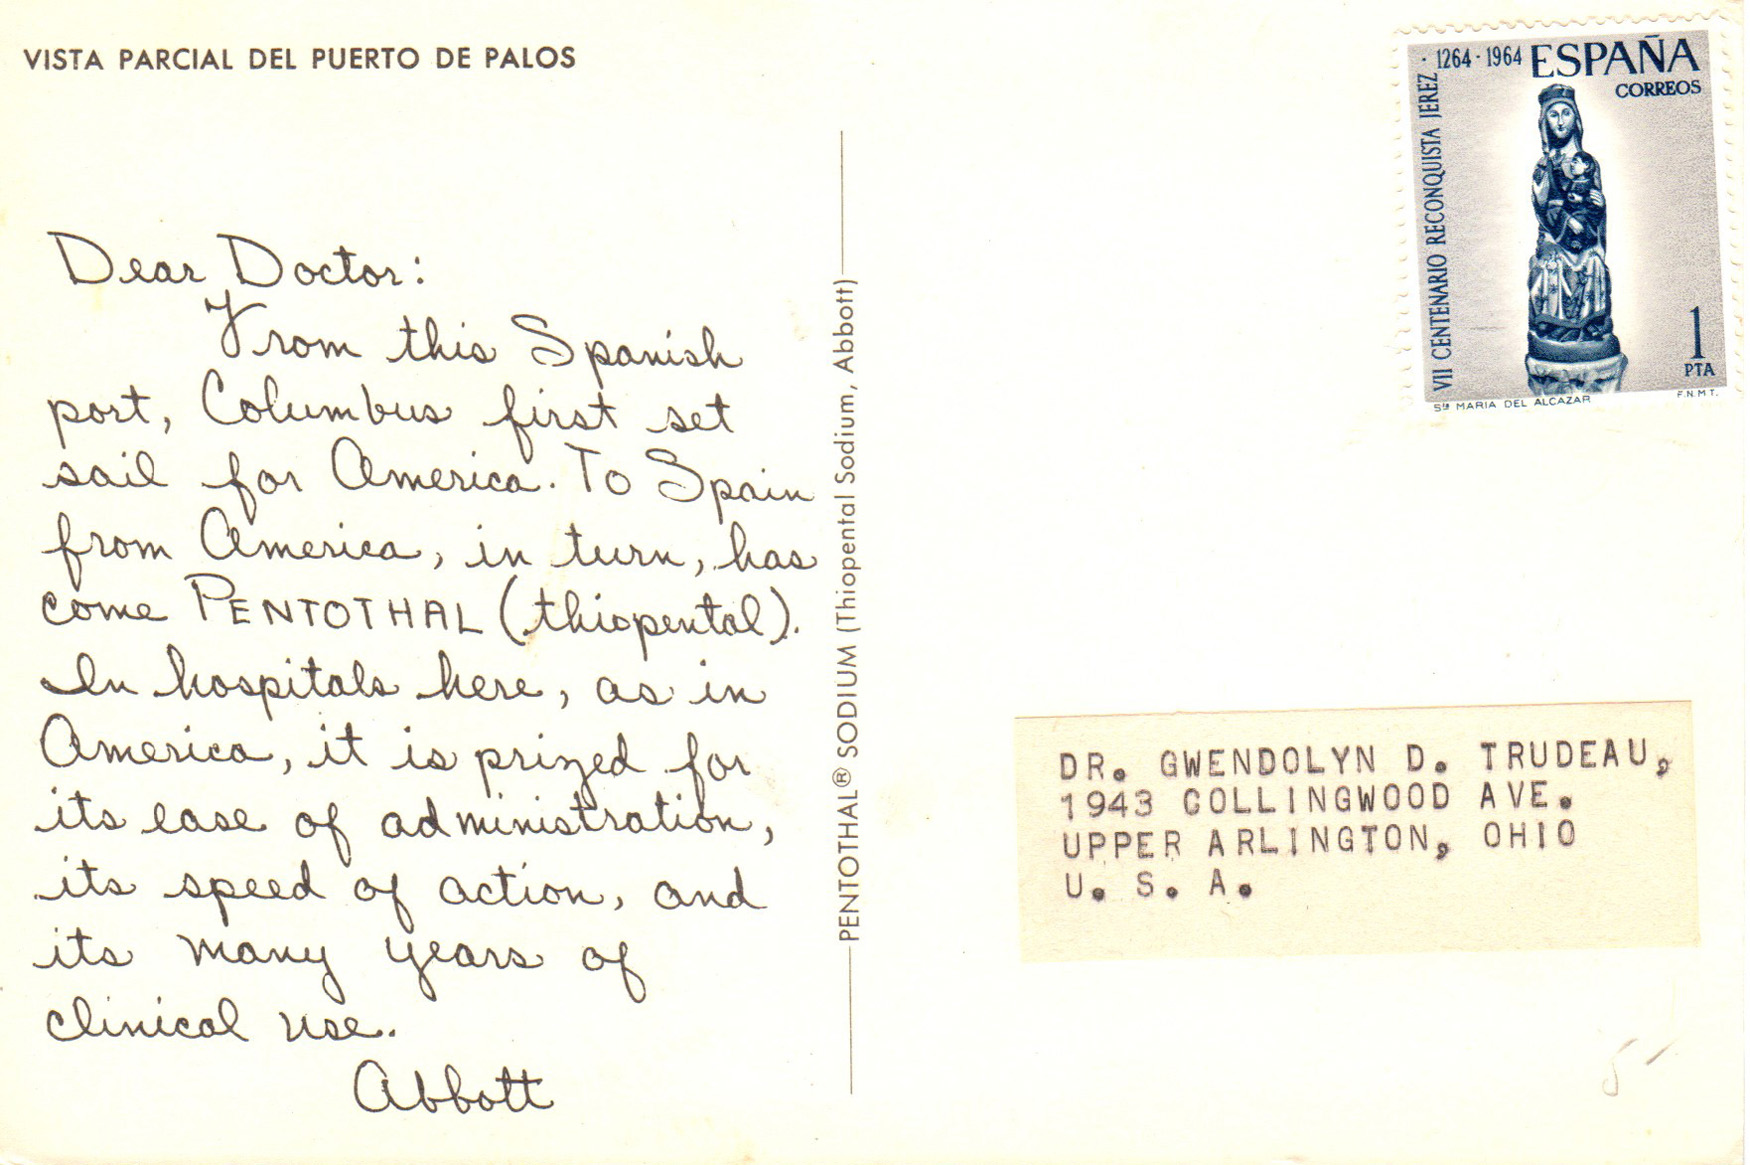 VISTA PARCIAL DEL PUERTO DE PALOS
Dear Doctor:
From this Spanish
port, Columbus first set
sail for America. To Spain
from America, in turn, has
come PENTOTHAL (thiopental).
In hospitals here, as in
America, it is prized for
its ease of administration,
its speed of action, and
its many years of
clinical use.
Abbott
PENTOTHAL® SODIUM (Thiopental Sodium, Abbott)
· 1264 - 1964 ESPAÑA
CORREOS
VII CENTENARIO RECONQUISTA JEREZ
1
PTA
Sta MARIA DEL ALCAZAR
F.N.M.T.
DR. GWENDOLYN D. TRUDEAU,
1943 COLLINGWOOD AVE.
UPPER ARLINGTON, OHIO
U. S. A.
5